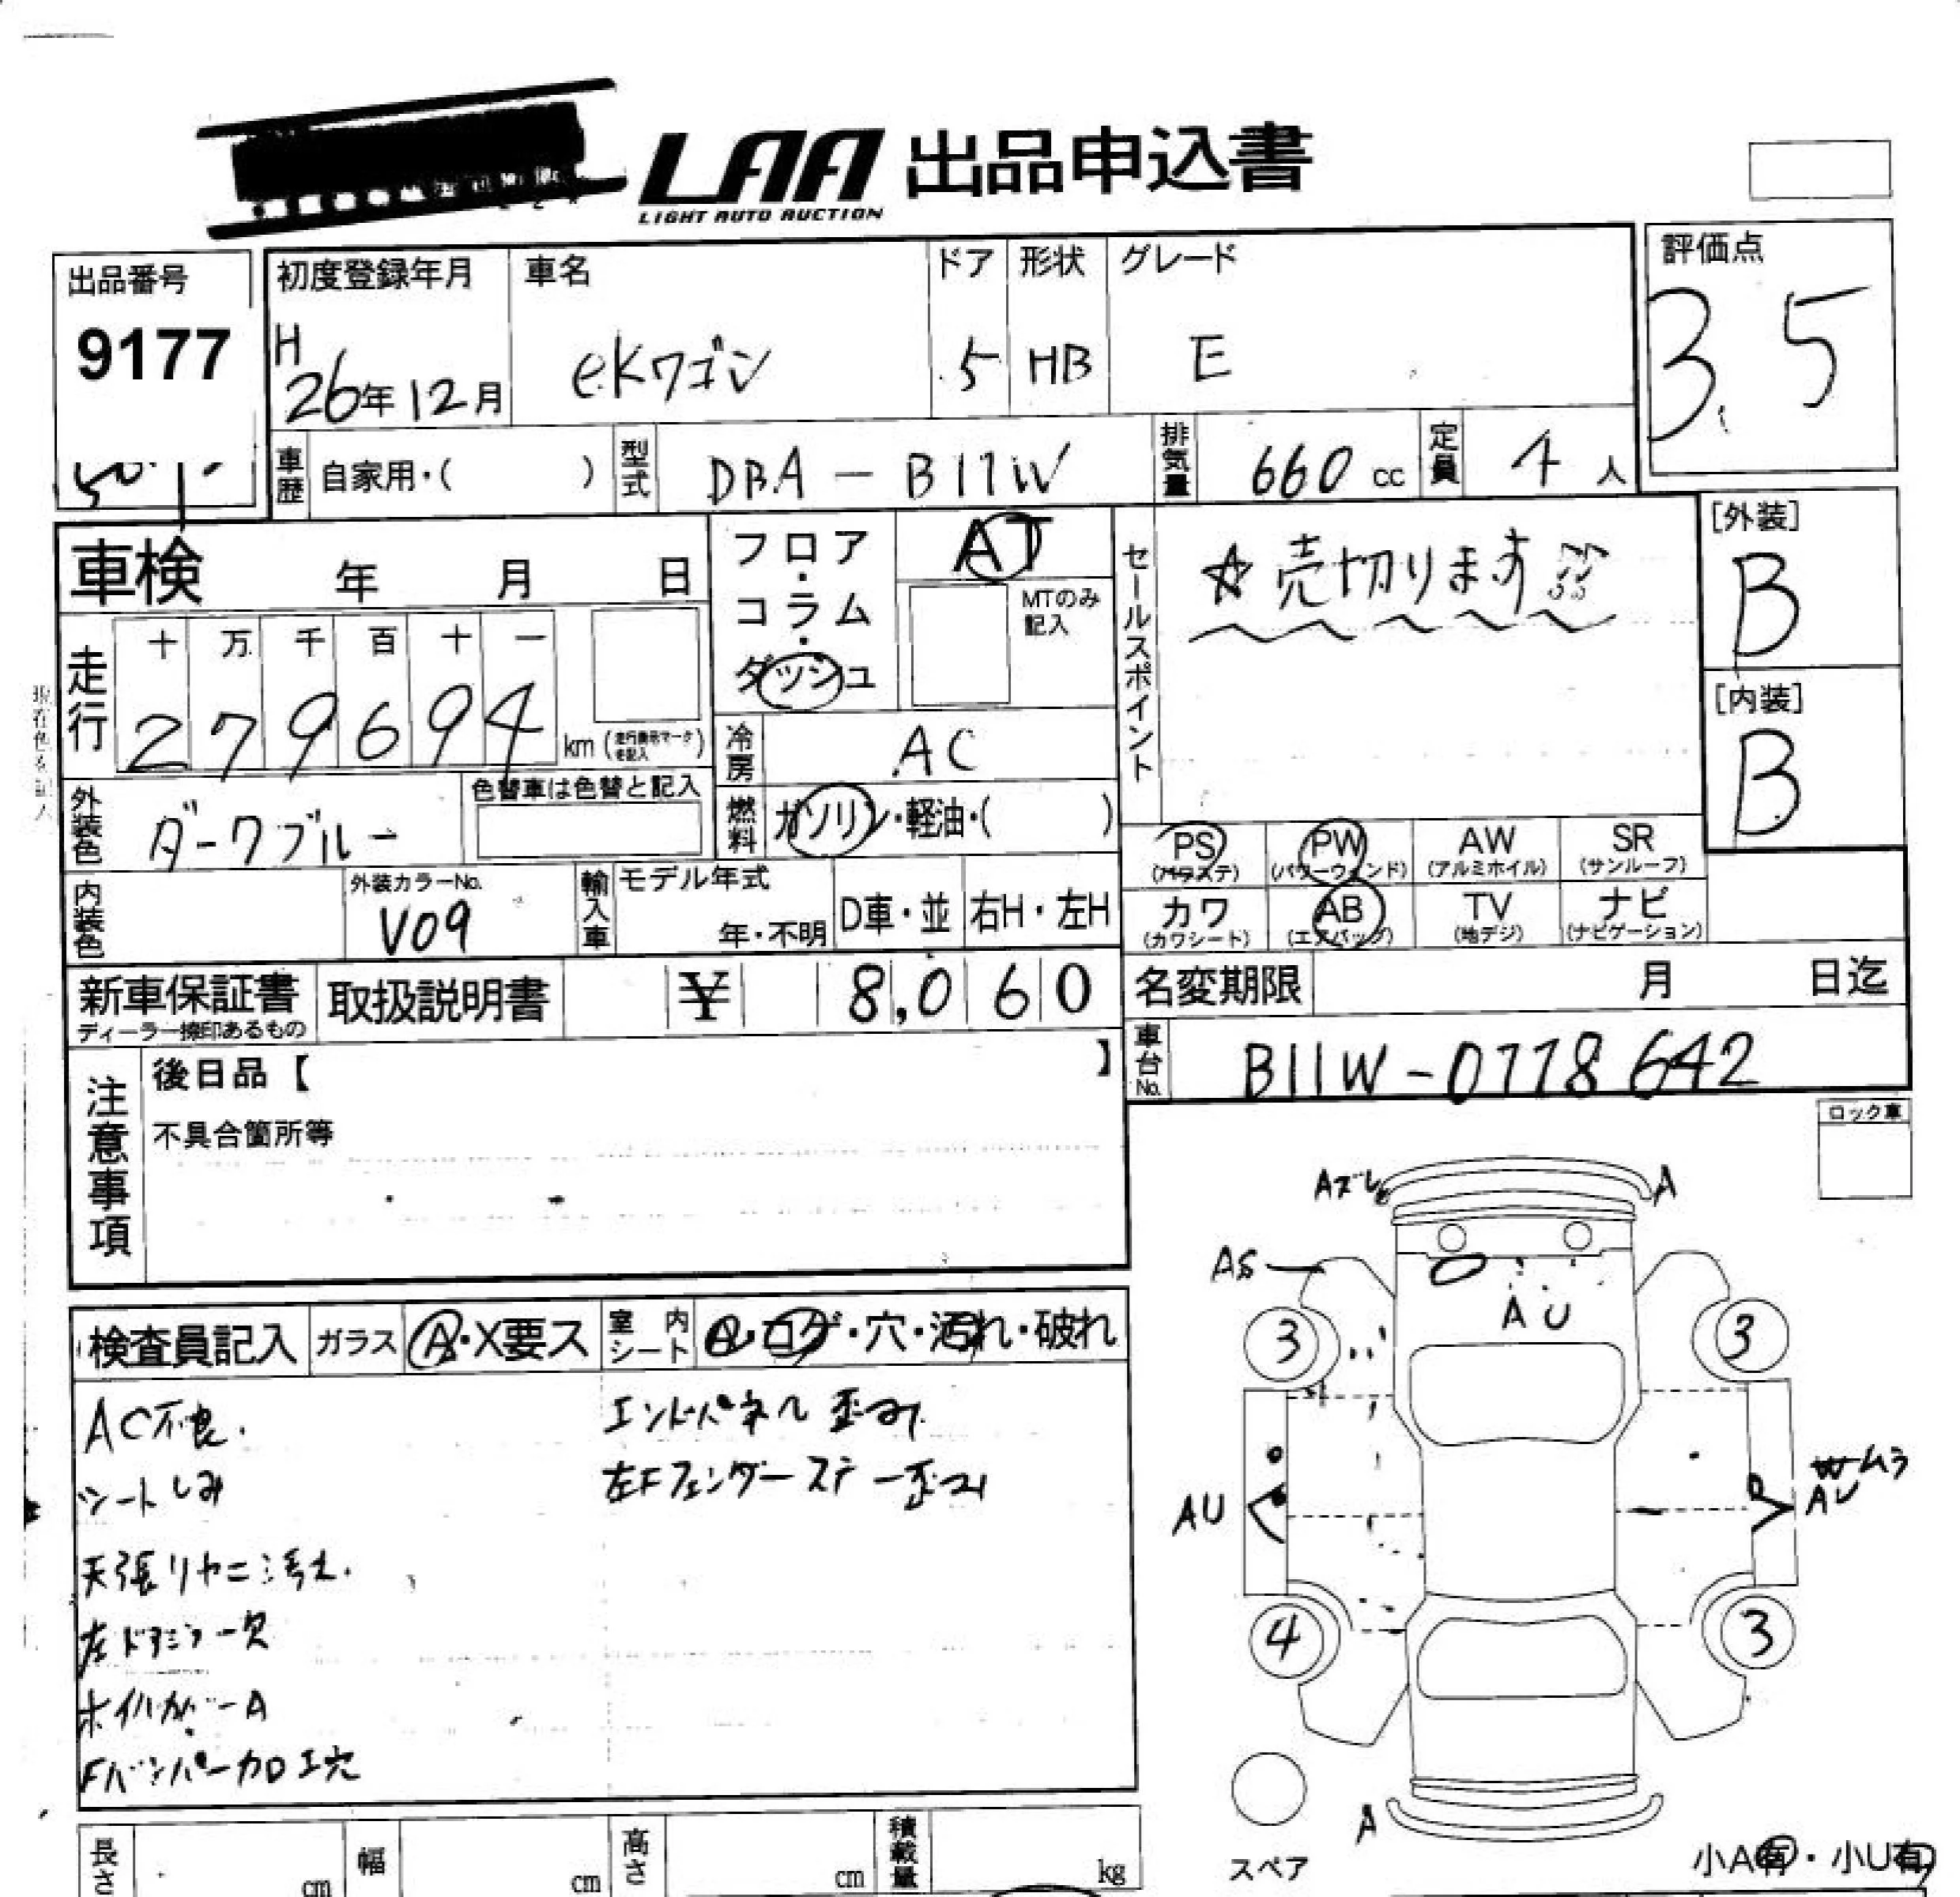 LAA 出品申込書
LIGHT AUTO AUCTION
出品番号
9177
初度登録年月
H
26年12月
車名
eKワゴン
ドア
5
形状
HB
グレード
E
評価点
3.5
車歴
自家用・( )
型式
DBA-B11W
排気量
660 cc
定員
4 人
車検 年 月 日
走行
十 万 千 百 十 一
279694
km (走行換算マークを記入)
フロア・コラム・ダッシュ
AT
MTのみ記入
セールスポイント
☆売切ります
[外装]
B
[内装]
B
冷房
AC
外装色
ダークブルー
色替車は色替と記入
燃料
ガソリン・軽油・( )
PS
(パワステ)
PW
(パワーウィンド)
AW
(アルミホイル)
SR
(サンルーフ)
内装色
外装カラーNo.
V09
輸入車
モデル年式
年・不明
D車・並
右H・左H
カワ
(カワシート)
AB
(エアバッグ)
TV
(地デジ)
ナビ
(ナビゲーション)
新車保証書
ディーラー捺印あるもの
取扱説明書
¥ 8,060
名変期限 月 日迄
車台No.
B11W-0778642
注意事項
後日品【 】
不具合箇所等
ロック車
検査員記入
ガラス
A・X要ス
室内シート
A・コゲ・穴・汚れ・破れ
AC不良.
シートしみ
天張りヤニ汚れ.
左ドアミラー欠
ホイルカバーA
Fバンパー加工穴
エンドパネル歪み
左Fフェンダーステー歪み
Aズレ
A
AS
AU
3
3
AU
ムラ
AU
4
3
A
スペア
小A有・小U有
長さ
cm
幅
cm
高さ
cm
積載量
kg